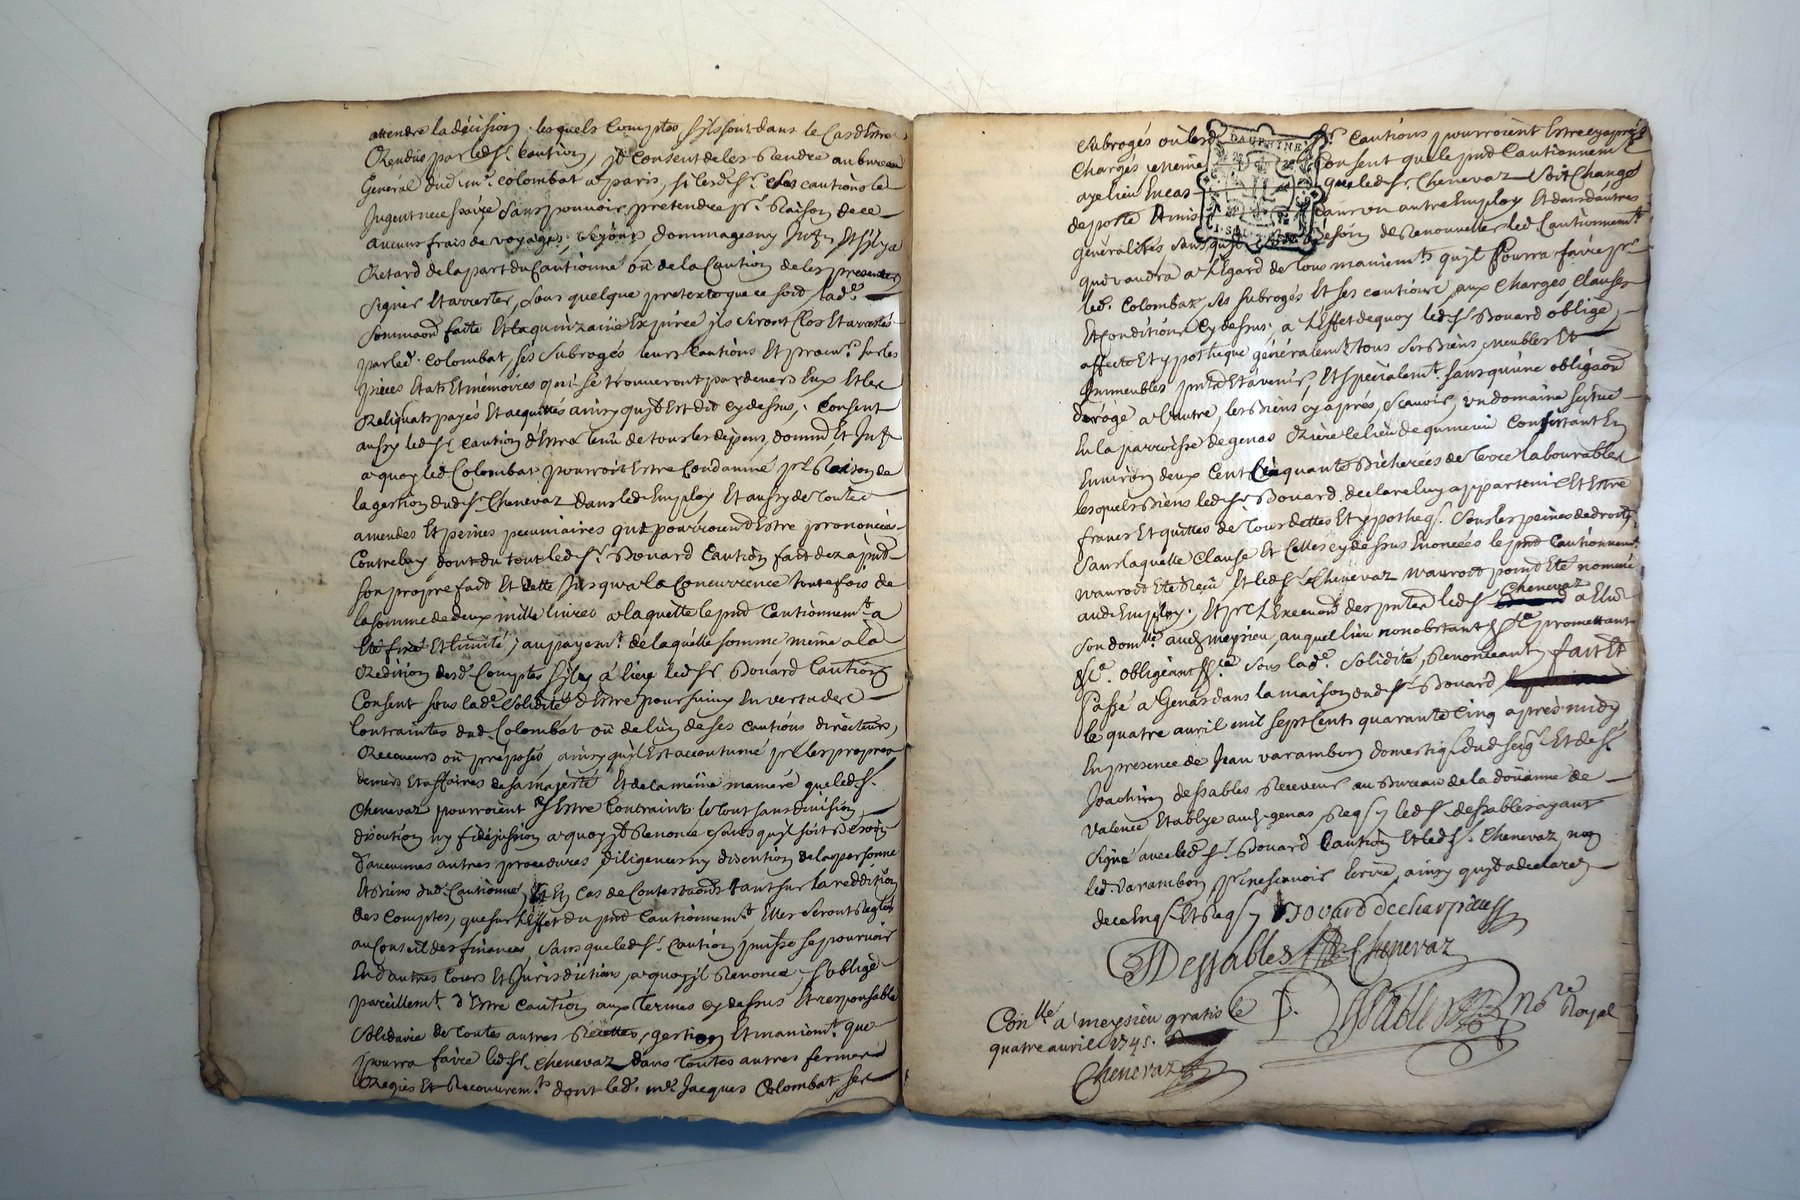 attendre la décision, lesquels Comptes, s'ils sont dans le Cas d'Estre
Rendus par led. Sr. caution, il consent de les Rendre au bureau
Général dud. mr. Colombat a paris, si lesd. Srs. ses cautions le
Jugent necessaire sans pouvoir pretendre pr. Raison de ce
aucuns frais de voyages, sejours dommages ny Int. Et s'il y a
Retard de la part du Cautionné où de la Caution de les presenter
signer Et arrester, sous quelque pretexte que ce soit, lad.
sommaon faite Et la quinzaine Expirée ils seront Clos Et arretés
par led. Colombat, ses subrogés leurs cautions Et procur. sur les
pièces Etats Et mémoires qui se trouveront pardevers Eux Et les
Reliquats payés Et acquittés ainsy qu'il Est dit cy dessus, Consent
aussy led. Sr. caution d'Estre tenu de tous les depens, domm. Et Int.
a quoy led. Colombat pourroit Estre Condamné pr. Raison de
la gestion dud. Sr. Chenevaz dans led. Employ Et aussy de toutes
amendes Et peines pecuniaires qui pourroient Estre prononcées
Contre luy, dont du tout led. Sr. Bovard Caution fait dez a pnt
son propre fait Et dette Jusqu'a la Concurrence toute fois de
la somme de deux mille livres a laquelle le pnt Cautionnemt. a
Eté fixé Et limité, au payemt. de laquelle somme même a la
Redition desd. Comptes s'il y á lieu led. Sr. Bovard Caution
Consent sous lad. solidité d'Estre poursuivy En vertu des
Contraintes dud. Colombat où de l'un de ses Cautions directeurs,
Receveurs où préposés, ainsy qu'il Est accoutumé pr. les propres
deniers Et affaires de sa majesté Et de la même maniere que led. Sr.
Chenevaz pourroient y Estre Contraint le tout sans division,
discution ny fidéjussion a quoy il Renonce sans qu'il soit Besoin
d'aucunes autres procedures, diligences ny discution de la personne
Et Biens dud. Cautionné, Et En Cas de Contestaons tant sur la reddition
des Comptes, que sur l'Effet du pnt Cautionnemt. Elles seront Reglées
au Conseil des finances, sans que led. Sr. Caution puisse se pourvoir
En d'autres Cours Et Jurisdictions, a quoy il Renonce s'oblige
pareillemt. d'Estre Caution aux termes cy dessus Et responsable
solidaire de toutes autres Recettes, gestion Et maniemt. que
pourra faire led. Sr. Chenevaz dans toutes autres fermes
Regies Et Recouvremts. dont led. mr. Jacques Colombat ses
subrogés où lesd. Srs. Cautions pourroient Estre cy après
Chargés Consent que le pnt Cautionnemt.
aye lieu En cas que led. Sr. Chenevaz soit Changé
de poste Et mis dans un autre Employ Et dans d'autres
généralités sans qu'il Besoin de Renouveller led. Cautionnemt.
qui vaudra a l'Egard de tous maniemts. qu'il pourra faire pr.
led. Colombat, ses subrogés Et ses cautions, aux Charges Clauses
Et Conditions Cy dessus, a l'Effet de quoy led. Sr. Bovard oblige,
affecte Et ypotheque généralemt. tous ses Biens, meubles Et
Immeubles pnts Et avenir, Et specialemt. sans qu'une obligaon
déroge a l'autre, les Biens cy aprés, scavoir, un domaine situé
En la parroisse de genas Riere le lieu de Consistant En
Environ deux Cent Cinquante Bicherées de terre labourables
lesquels Biens led. Sr. Bovard declare luy appartenir Et Estre
francs Et quittes de tous dettes Et ypotheq. sous les peines de droit,
sans laquelle Clause Et Celles cy dessus Enoncées le pnt Cautionnemt.
n'auroit Eté Reçu Et led. Sr. Chenevaz n'auroit point Eté nommé
aud. Employ, Et pr. l'Execuon des pntes led. Sr. Chenevaz a Elu
son domlle. aud. meysieu, auquel lieu nonobstant &a. promettant
&a. obligeant &a. sous lad. solidité, Renonceant, fait Et
Passé a Genas dans la maison dud. Sr. Bovard,
le quatre avril mil sept Cents quarante Cinq aprés midy
En presence de Jean varambon domestiq. dud. Et de Sr.
Joachim dessables Receveur au Bureau de la doüanne de
Valence Etablye aud. genas, Req. led. Sr. dessables ayant
signé avec led. Sr. Bovard Caution Et led. Sr. Chenevaz, non
led. Varambon pr. ne scavoir Ecrire, ainsy qu'il a declaré
de ce Enq. Et Req. Bovard de
JDessables Chenevaz
Dessables Nore. Royal
Conllé a meysieu gratis le
quatre avril 1745.
Chenevaz
DAUPHINE